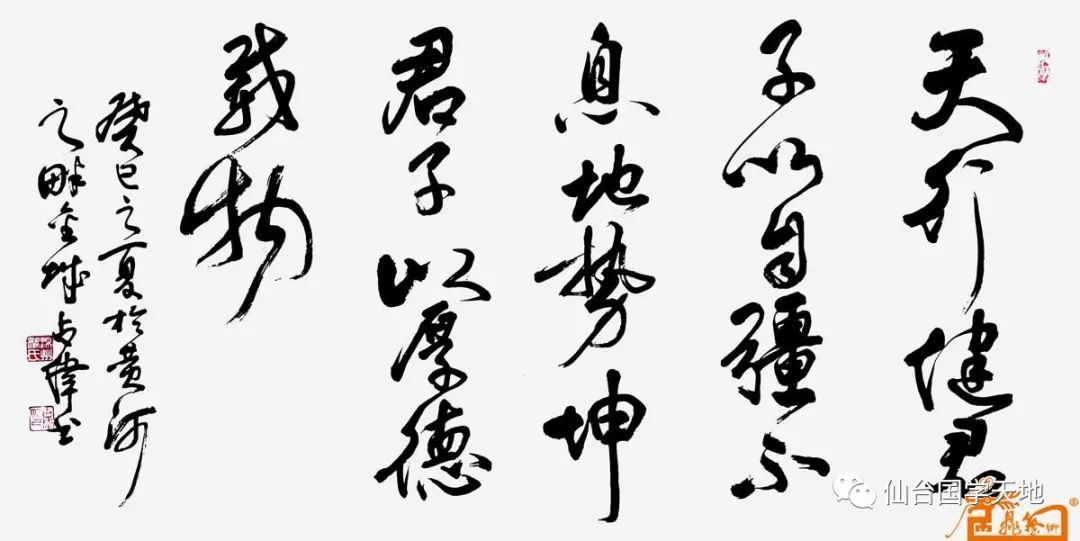 天行健君
子以自疆不
息地势坤
君子以厚德
载物
癸巳之夏於黄河
之畔金城占伟书
仙台国学天地